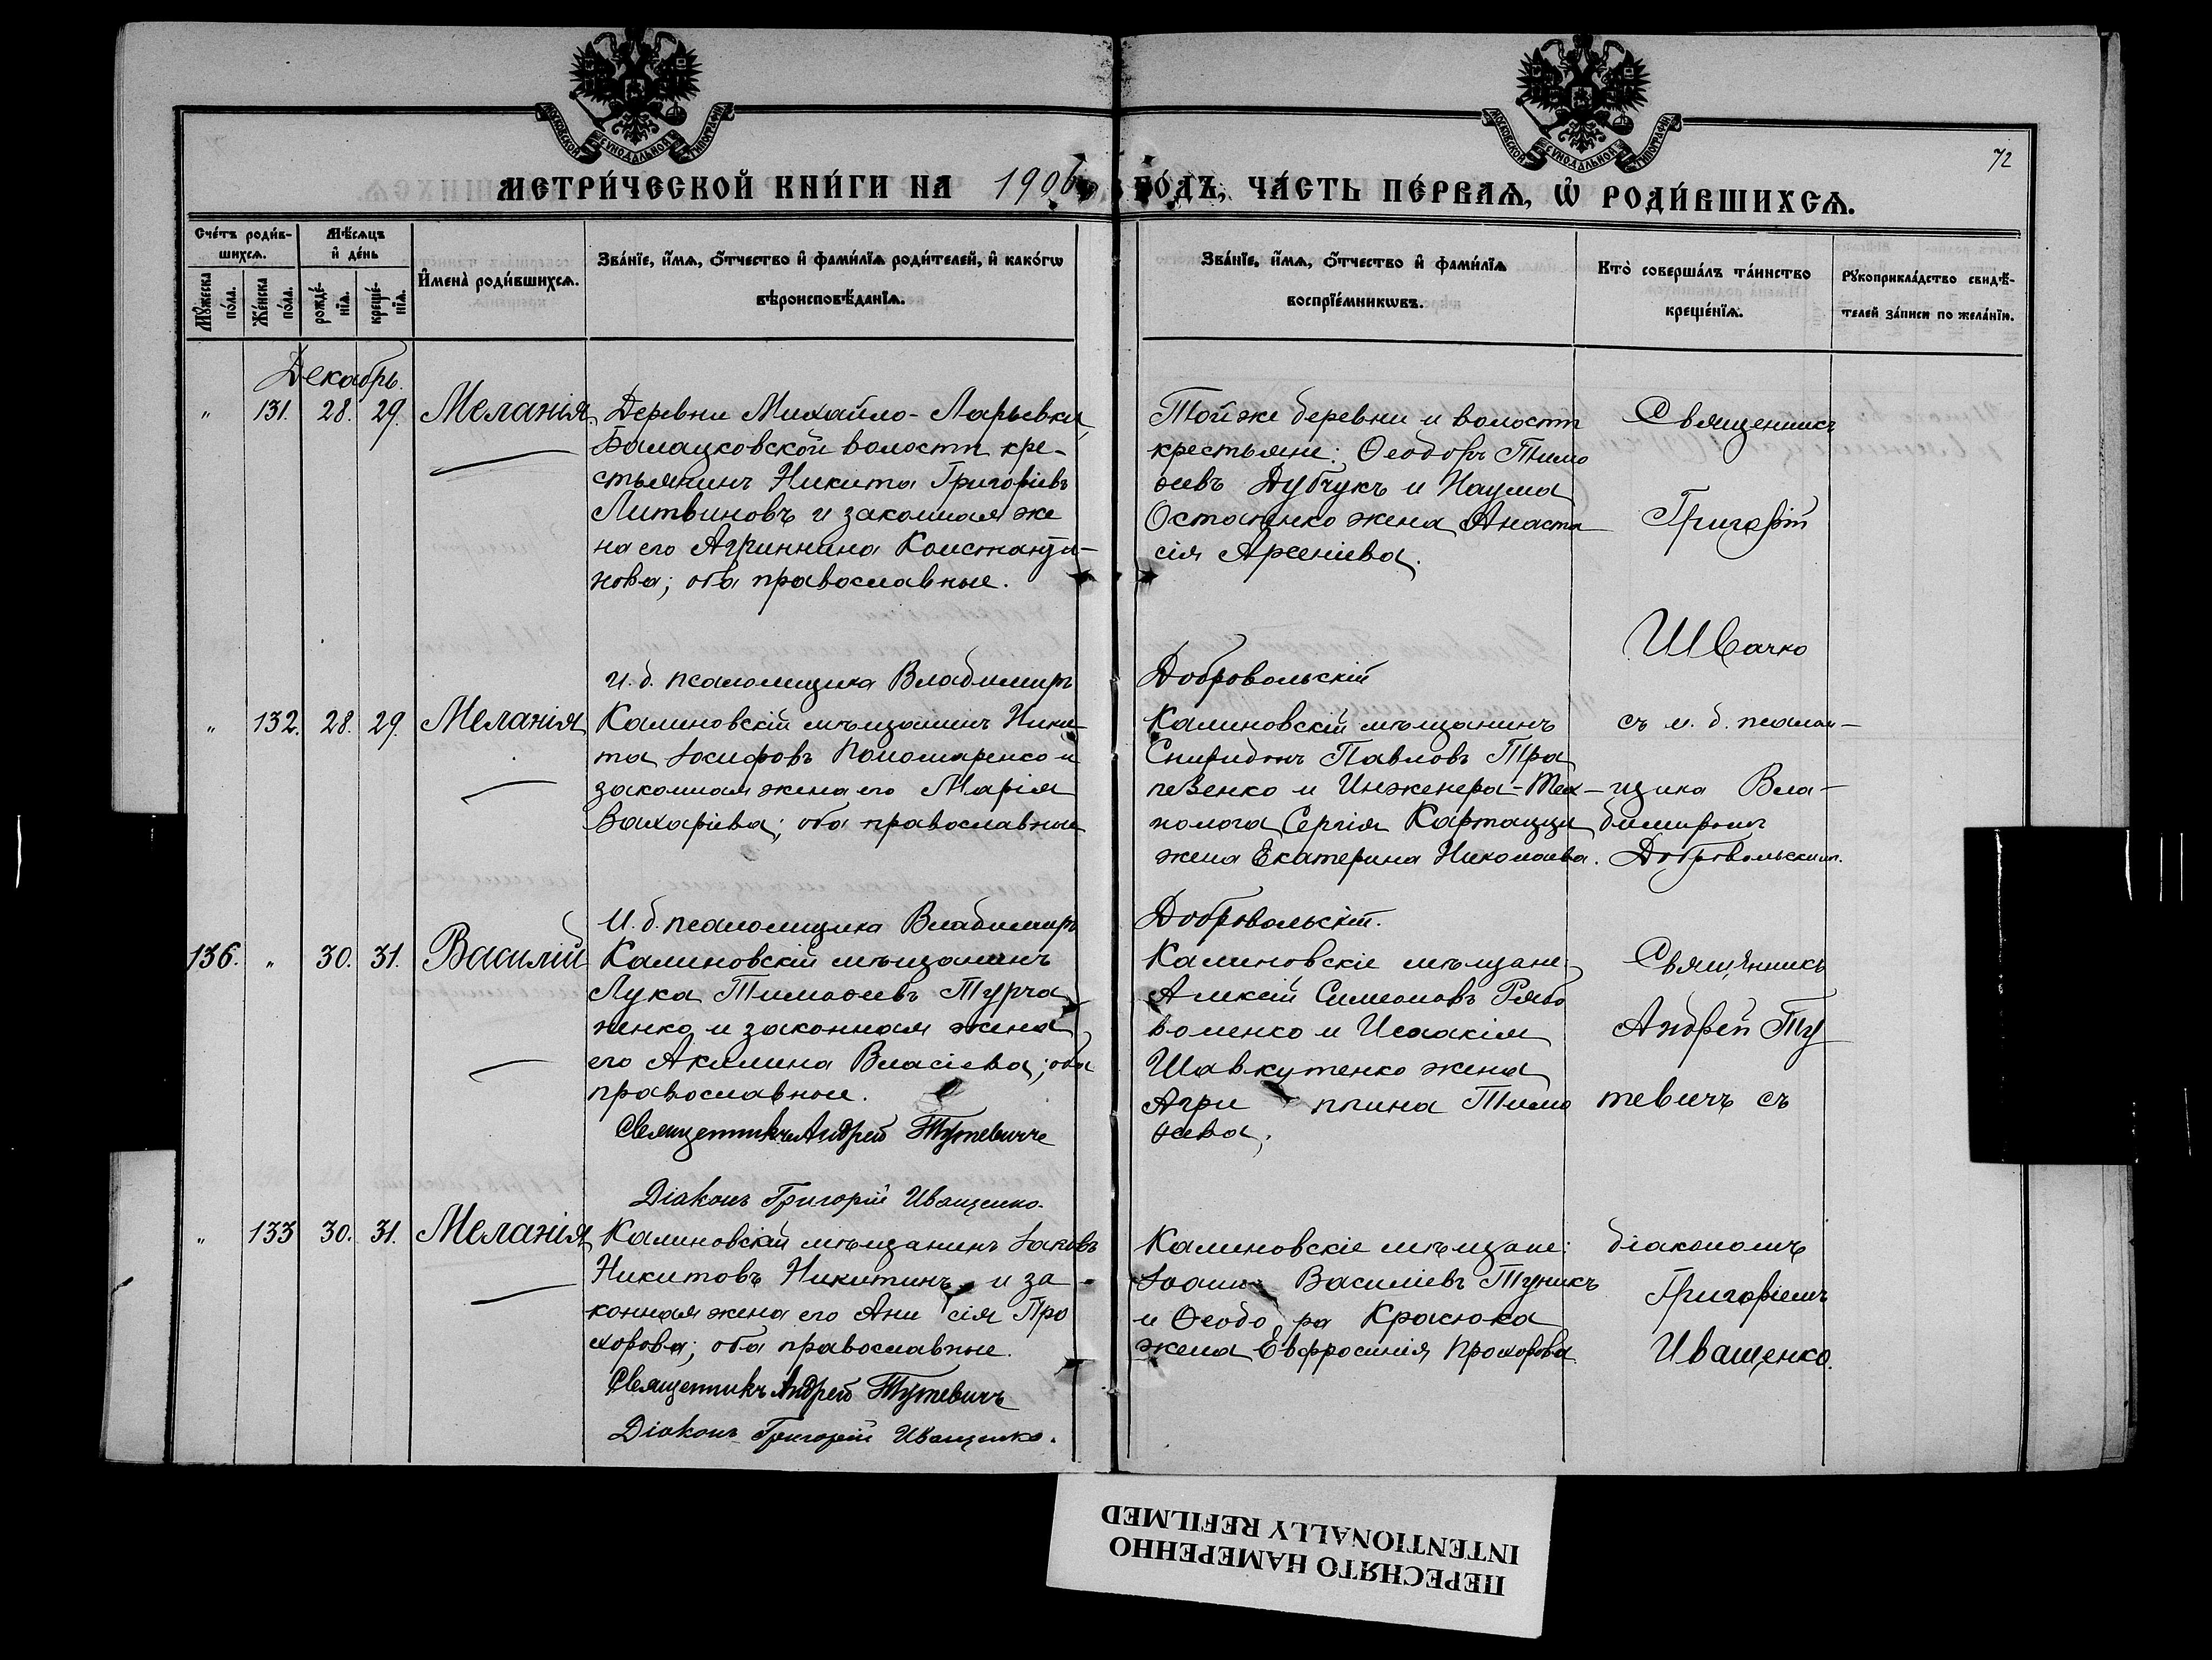 МОСКОВСКОЙ СѴНОДАЛЬНОЙ ТИПОГРАФІИ
МОСКОВСКОЙ СѴНОДАЛЬНОЙ ТИПОГРАФІИ
72
МЕТРИ́ЧЕСКОЙ КНИ́ГИ НА 1906 ГО́ДЪ, ЧА́СТЬ ПЕ́РВАѦ, Ѡ҆ РОДИ́ВШИХСѦ.
Сче́тъ роди́в-
шихсѧ.
Мѣ́сѧцъ
и҆ де́нь
Мꙋ́жеска
по́ла.
Же́нска
по́ла.
рожде́-
нїѧ.
креще́-
нїѧ.
И҆мена̀ роди́вшихсѧ.
Зва́нїе, и҆́мѧ, ѻ҆́тчество и҆ фами́лїѧ роди́телей, и҆ како́гѡ
вѣроисповѣ́данїѧ.
Зва́нїе, и҆́мѧ, ѻ҆́тчество и҆ фами́лїѧ
воспрїе́мникѡвъ.
Кто̀ соверша́лъ та́инство
креще́нїѧ.
Рꙋкоприкла́дство свидѣ́-
телей за́писи по жела́нїю.
Декабрь.
" 131. 28. 29. Меланія.
Деревни Михайло-Ларьевки,
Балацковской волости кре-
стьянинъ Никита Григоріевъ
Литвиновъ и законная же
на его Агриппина Константи-
нова; оба православные.
Той же деревни и волости
крестьяне: Ѳеодоръ Тимо
ѳеевъ Дубчукъ и Наума
Остапенко жена Анаста
сія Арсеніева.
Священникъ
Григорій
Швачко
И. д. псаломщика Владимиръ Добровольскій
" 132. 28. 29. Меланія
Калиновскій мѣщанинъ Ники-
та Іосифовъ Пономаренко и
законная жена его Марія
Захаріева; оба православные
Калиновскій мѣщанинъ
Спиридонъ Павловъ Тра
пезенко и Инженера-Тех-
нолога Сергія Картацци
жена Екатерина Николаева.
съ и. д. псалом-
щика Вла-
димиромъ
Добровольскимъ.
И. д. псаломщика Владимиръ Добровольскій.
136. " 30. 31. Василій
Калиновскій мѣщанинъ
Лука Тимоѳеевъ Турча
ненко и законная жена
его Акилина Власіева; оба
православные.
Священникъ Андрей Тутевичъ
Калиновскіе мѣщане:
Алексій Симеоновъ Рябо
воленко и Исаакія
Шавкутенко жена
Агриппина Тимо
ѳеева.
Священникъ
Андрей Ту
тевичъ съ
Діаконъ Григорій Иващенко.
" 133 30. 31. Меланія
Калиновскій мѣщанинъ Іаковъ
Никитовъ Никитинъ и за-
конная жена его Анисія Про
хорова; оба православные.
Священникъ Андрей Тутевичъ
Діаконъ Григорій Иващенко.
Калиновскіе мѣщане:
Іоаннъ Василіевъ Туникъ
и Ѳеодора Красюка
жена Евфросинія Прохорова
діакономъ
Григоріемъ
Иващенко.
ПЕРЕСНЯТО НАМЕРЕННО
INTENTIONALLY REFILMED